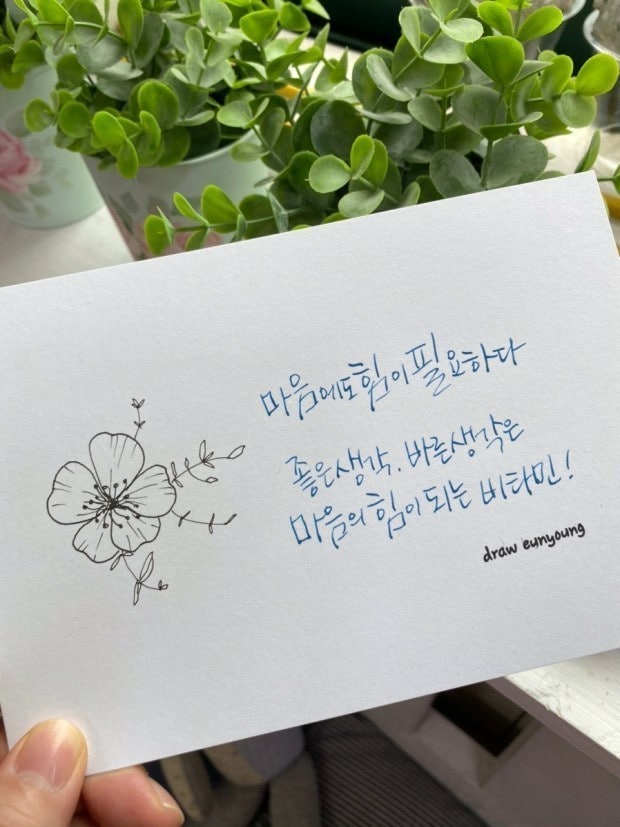 마음에도 힘이 필요하다
좋은생각. 바른생각은
마음의 힘이 되는 비타민!
draw eunyoung